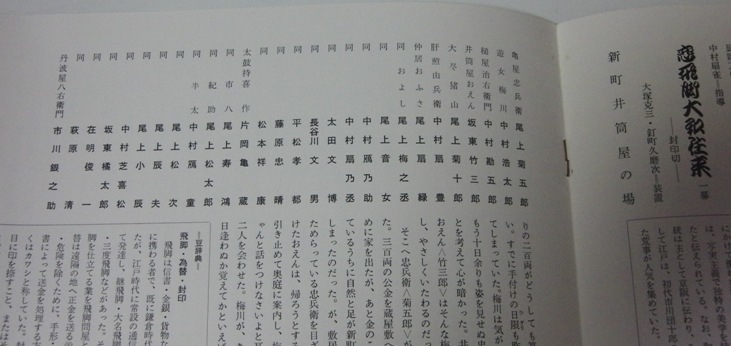 中村扇雀━指導
恋飛脚大和往来 一幕
━━封印切━━
大塚克三・釘町久磨次━装置
新町井筒屋の場
亀屋忠兵衛 尾上菊五郎
遊女梅川 中村浩太郎
槌屋治右衛門 中村勘五郎
井筒屋おえん 坂東竹三郎
大尽猪山 尾上菊十郎
肝煎由兵衛 中村扇豊
仲居おふさ 尾上扇緑
同 およし 尾上梅之丞
同 尾上音女
同 中村鴈乃助
同 中村扇乃丞
同 太田文博
同 長谷川文男
同 平松孝都
同 藤原忠晴
同 松本祥康
太鼓持喜作 片岡亀蔵
同 市八 尾上寿鴻
同 紀助 尾上松太郎
同 半太 中村鴈童
同 尾上松次
同 尾上辰夫
同 尾上小辰
同 中村芝喜松
同 坂東橘太郎
同 在明俊一
同 萩原清
丹波屋八右衛門 市川銀之助
りの二百両がどうしても
い。すでに手付の日限も
てしまっていた。梅川は気が
もう十日余りも姿を見せぬ忠
とを考えて心が暗かった。井
おえん〈竹三郎〉はそんな梅
し、やさしくいたわるのだっ
そこへ忠兵衛〈菊五郎〉が
た。三百両の公金を蔵屋敷
めに家を出たが、あと金のこ
ているうちに自然と足が新町
しまったのだった。が、敷居
ためらっている忠兵衛を目ざ
けたおえんは、帰ろうとする
引き止めて奥庭に案内し、
ゃんと話をつけなさいよと
二人を会わせた。梅川が、き
日逢わぬか覚えてかといえば
━豆辞典━
飛脚・為替・封印
飛脚は信書・金銀・貨物な
に携わる者で、既に鎌倉時代
たが、江戸時代に常設の通信
て発達し、継飛脚・大名飛脚
・三度飛脚などがあった。そ
脚を仕立てる業を飛脚問屋
替は遠隔の地へ正金を送る
・危険を除くために、手形・
書によって送金を処理する
くはカワシと称していた。
目に印を捺すこと、または
は、写実主義で独特の美学を
たと伝えられている。なお、
統は主として京阪に伝わり、
して江戸は、初代市川団十郎
た荒事が人気を集めていた。